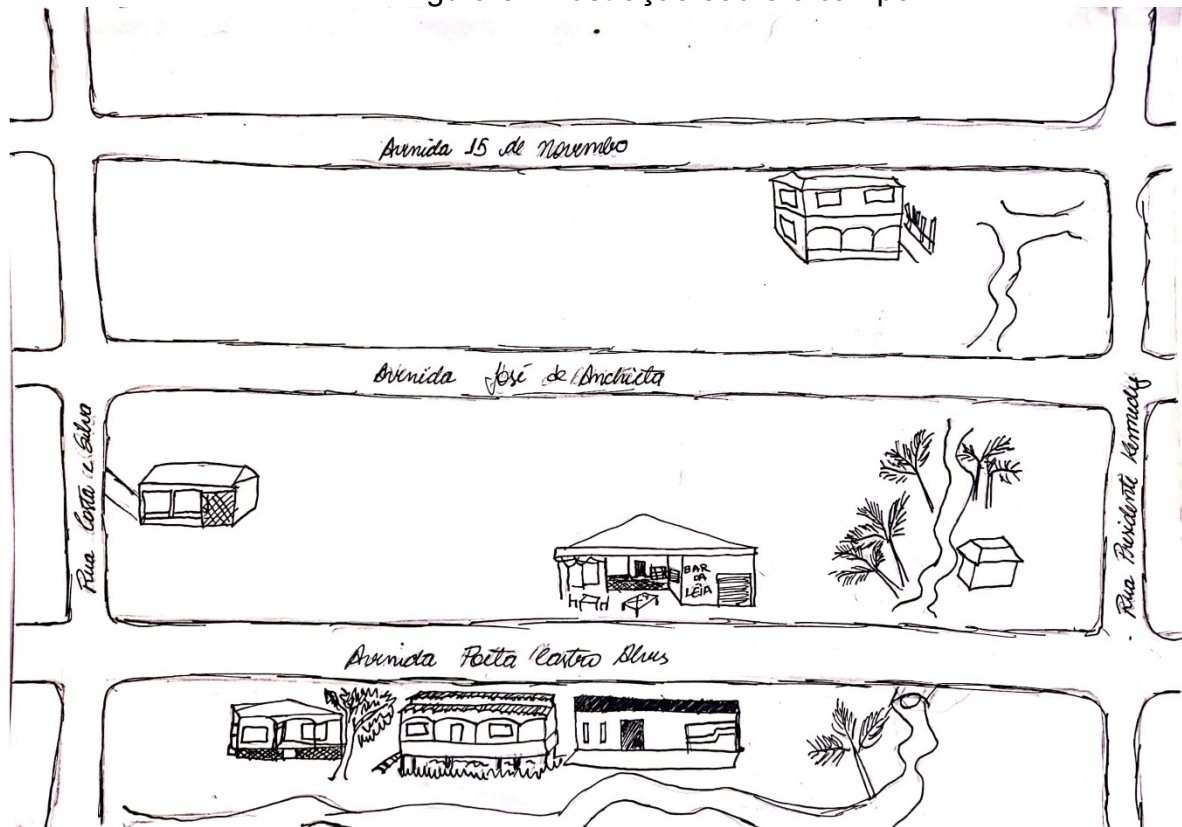 Avenida 15 de Novembo
Avenida José de Anchieta
Rua Costa e Silva
Rua Presidente Kennedy
BAR
DA
LÉIA
Avenida Poeta Castro Alves